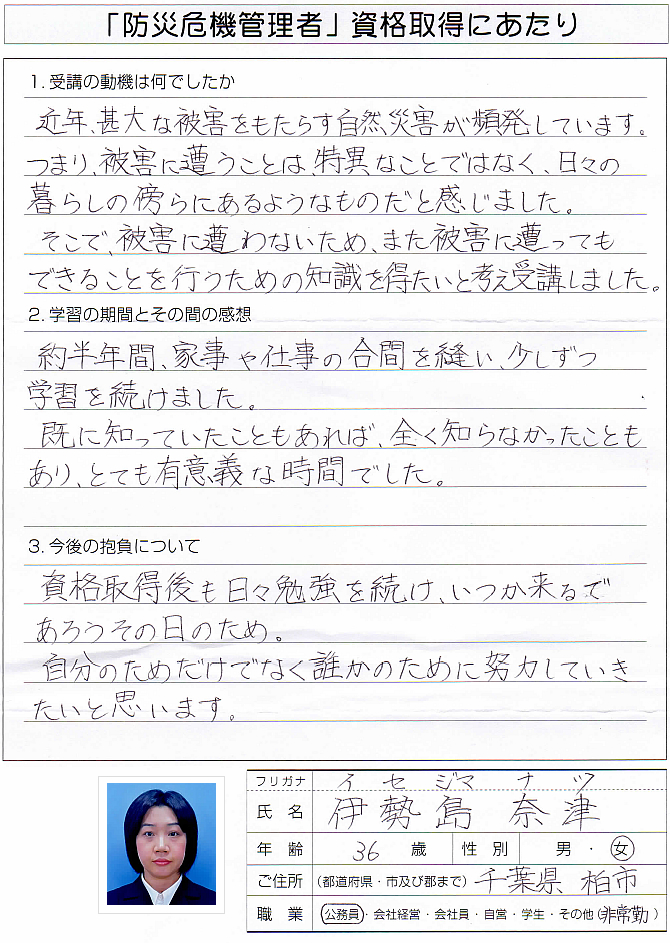 「防災危機管理者」資格取得にあたり
1. 受講の動機は何でしたか
近年、甚大な被害をもたらす自然災害が頻発しています。
つまり、被害に遭うことは、特異なことではなく、日々の
暮らしの傍らにあるようなものだと感じました。
そこで、被害に遭わないため、また被害に遭っても
できることを行うための知識を得たいと考え受講しました。
2. 学習の期間とその間の感想
約半年間、家事や仕事の合間を縫い、少しずつ
学習を続けました。
既に知っていたこともあれば、全く知らなかったことも
あり、とても有意義な時間でした。
3. 今後の抱負について
資格取得後も日々勉強を続け、いつか来るで
あろうその日のため。
自分のためだけでなく誰かのために努力していき
たいと思います。
フリガナ イセジマ ナツ
氏名 伊勢島 奈津
年齢 36 歳 性別 男・女
ご住所 (都道府県・市及び郡まで) 千葉県 柏市
職業 公務員・会社経営・会社員・自営・学生・その他(非常勤)